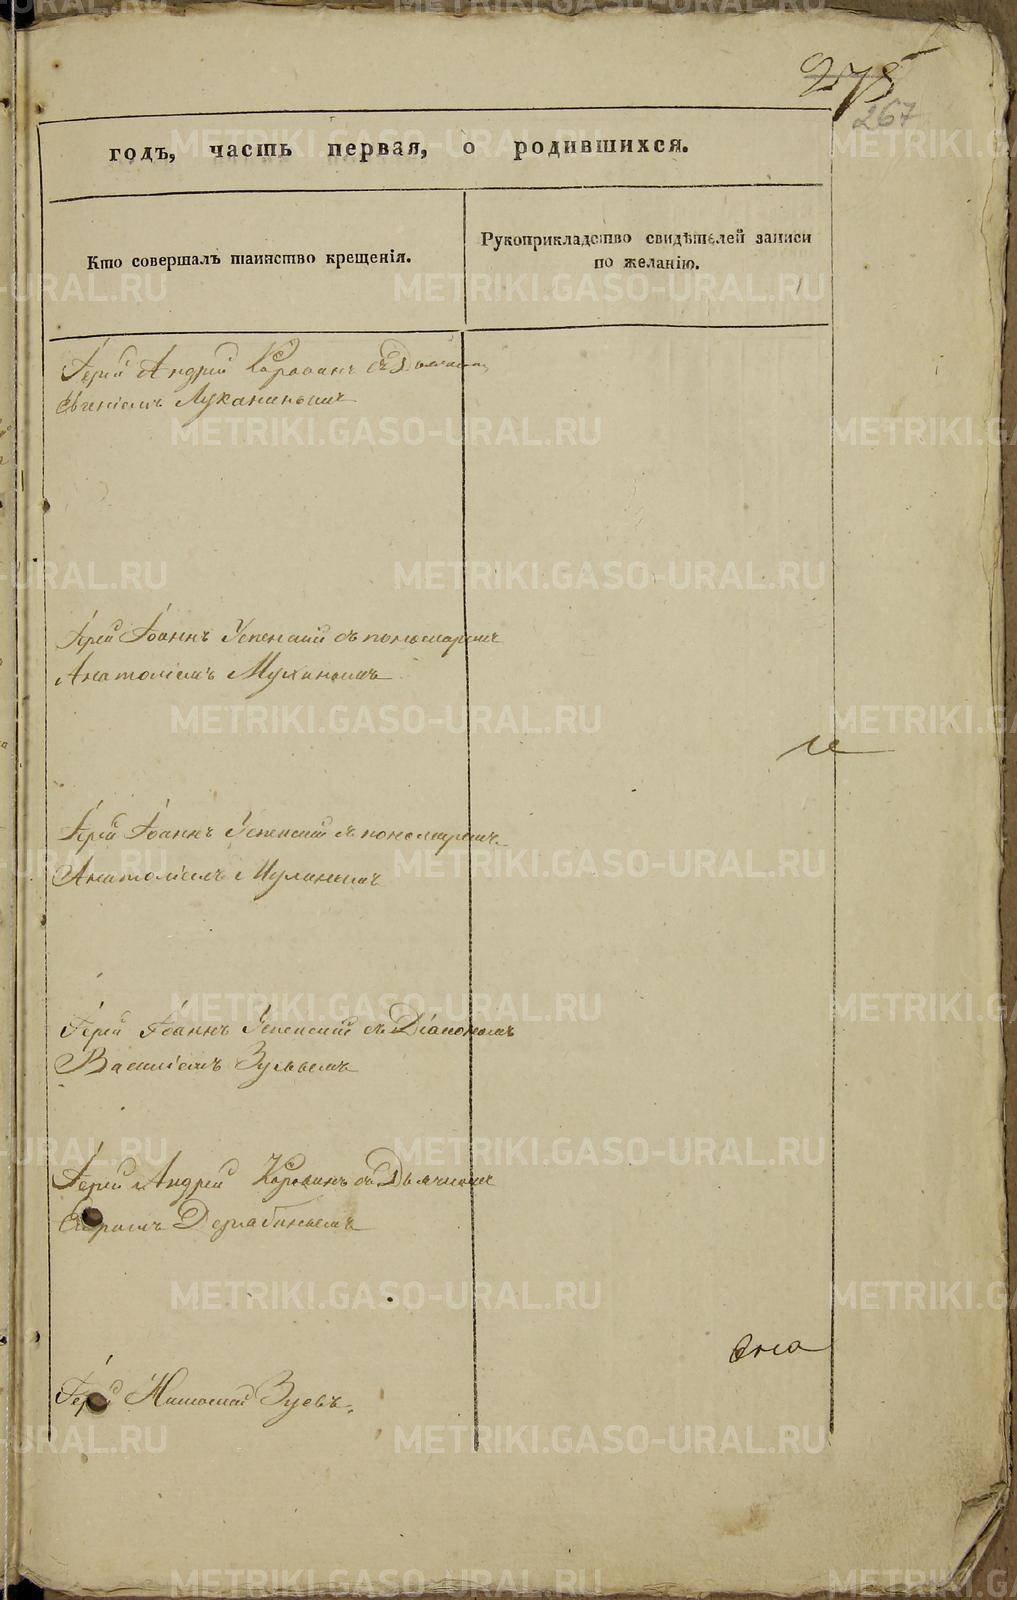 275
267
годъ, часть первая, о родившихся.
Кто совершалъ таинство крещенія.
Рукоприкладство свидѣтелей записи
по желанію.
Іерей Андрей Коровинъ съ Дьячкомъ
Евгеніемъ Луканинымъ
Іерей Іоаннъ Успенский съ пономаремъ
Анатоліемъ Мулинымъ
Іерей Іоаннъ Успенский съ пономаремъ
Анатоліемъ Мулинымъ
Іерей Іоаннъ Успенский съ Діакономъ
Василіемъ Зуевымъ
Іерей Андрей Коровинъ съ Дьячкомъ
Дерябинымъ
Іерей Николай Зуевъ.
METRIKI.GASO-URAL.RU